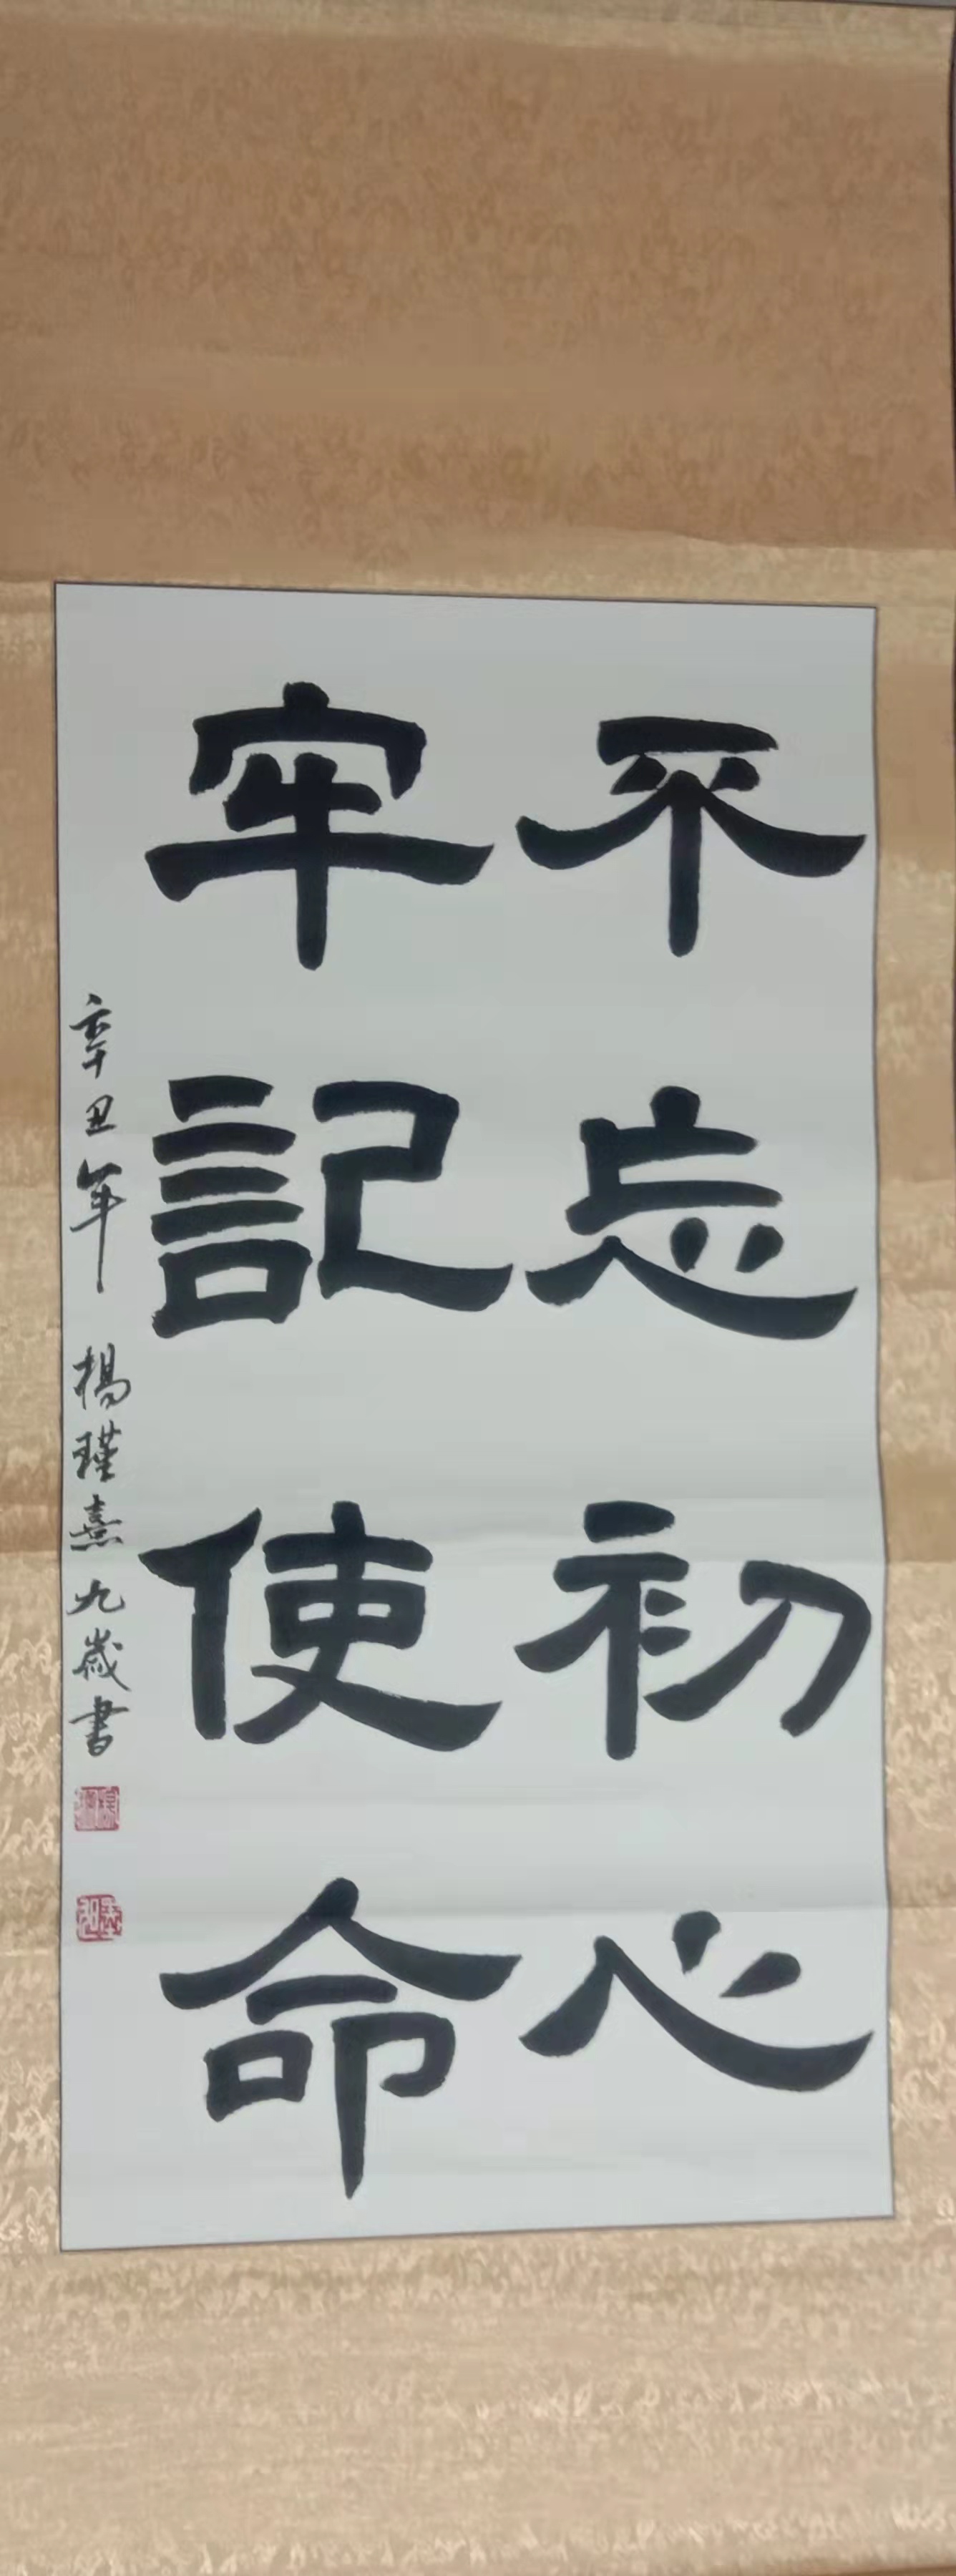 不忘初心
牢記使命
辛丑年 楊瑾熹九歲書